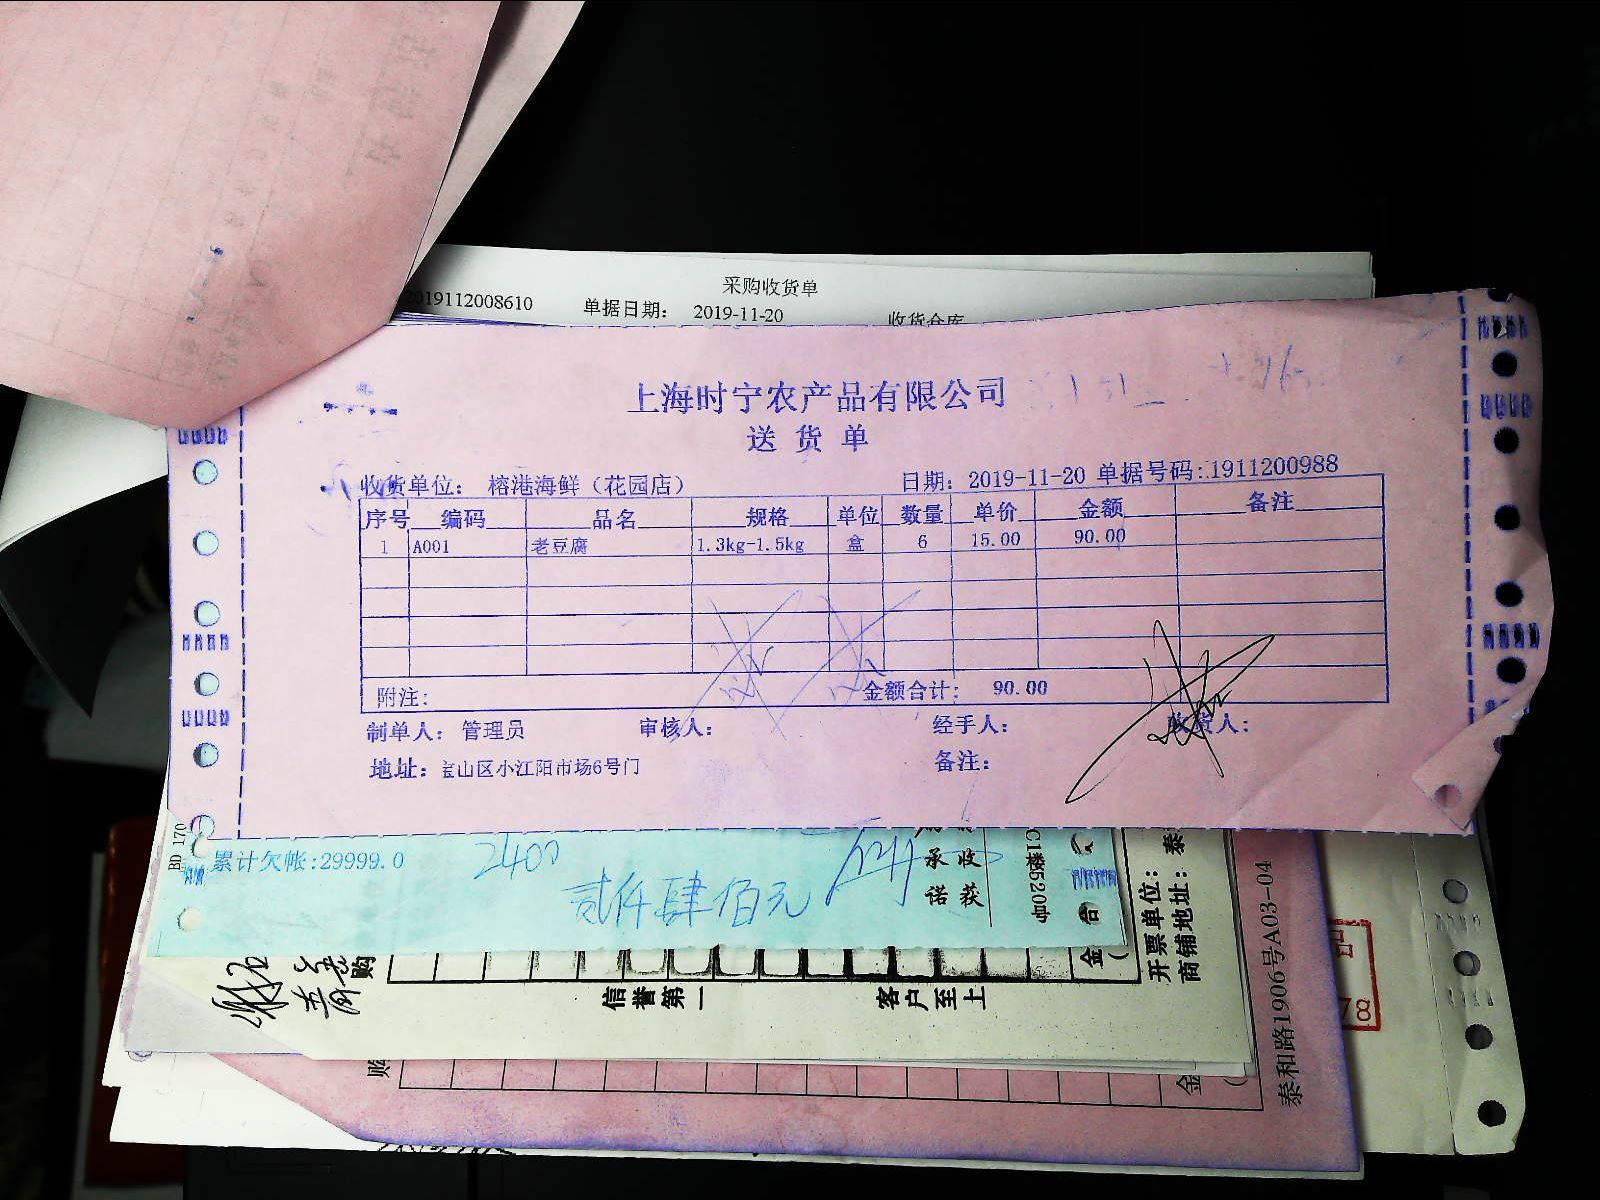 采购收货单
2019112008610 单据日期： 2019-11-20 收货仓库
上海时宁农产品有限公司
送货单
收货单位： 榕港海鲜（花园店） 日期：2019-11-20 单据号码:1911200988
序号 编码 品名 规格 单位 数量 单价 金额 备注
1 A001 老豆腐 1.3kg-1.5kg 盒 6 15.00 90.00
附注: 金额合计: 90.00
制单人：管理员 审核人： 经手人： 收货人：
地址：宝山区小江阳市场6号门 备注：
BD 170
累计欠帐:29999.0 2400
贰仟肆佰元
承诺
收获
合
金
开票单位：泰
商铺地址：
信誉第一
客户至上
购
购
金
泰和路1906号A03-04